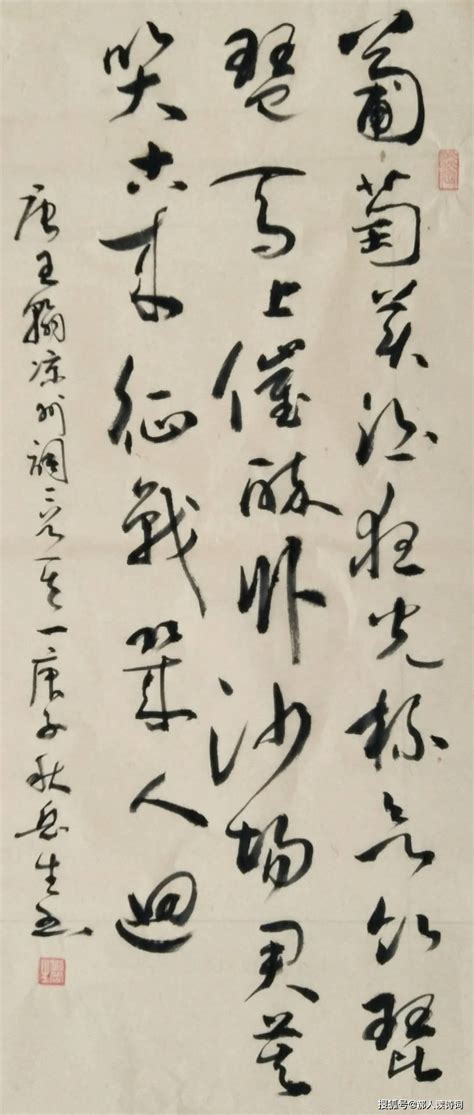 葡萄美酒夜光杯欲饮琵
琶马上催醉卧沙场君莫
笑古来征戰幾人迴
唐王翰凉州词二首其一庚子秋生书
搜狐号@人读诗词